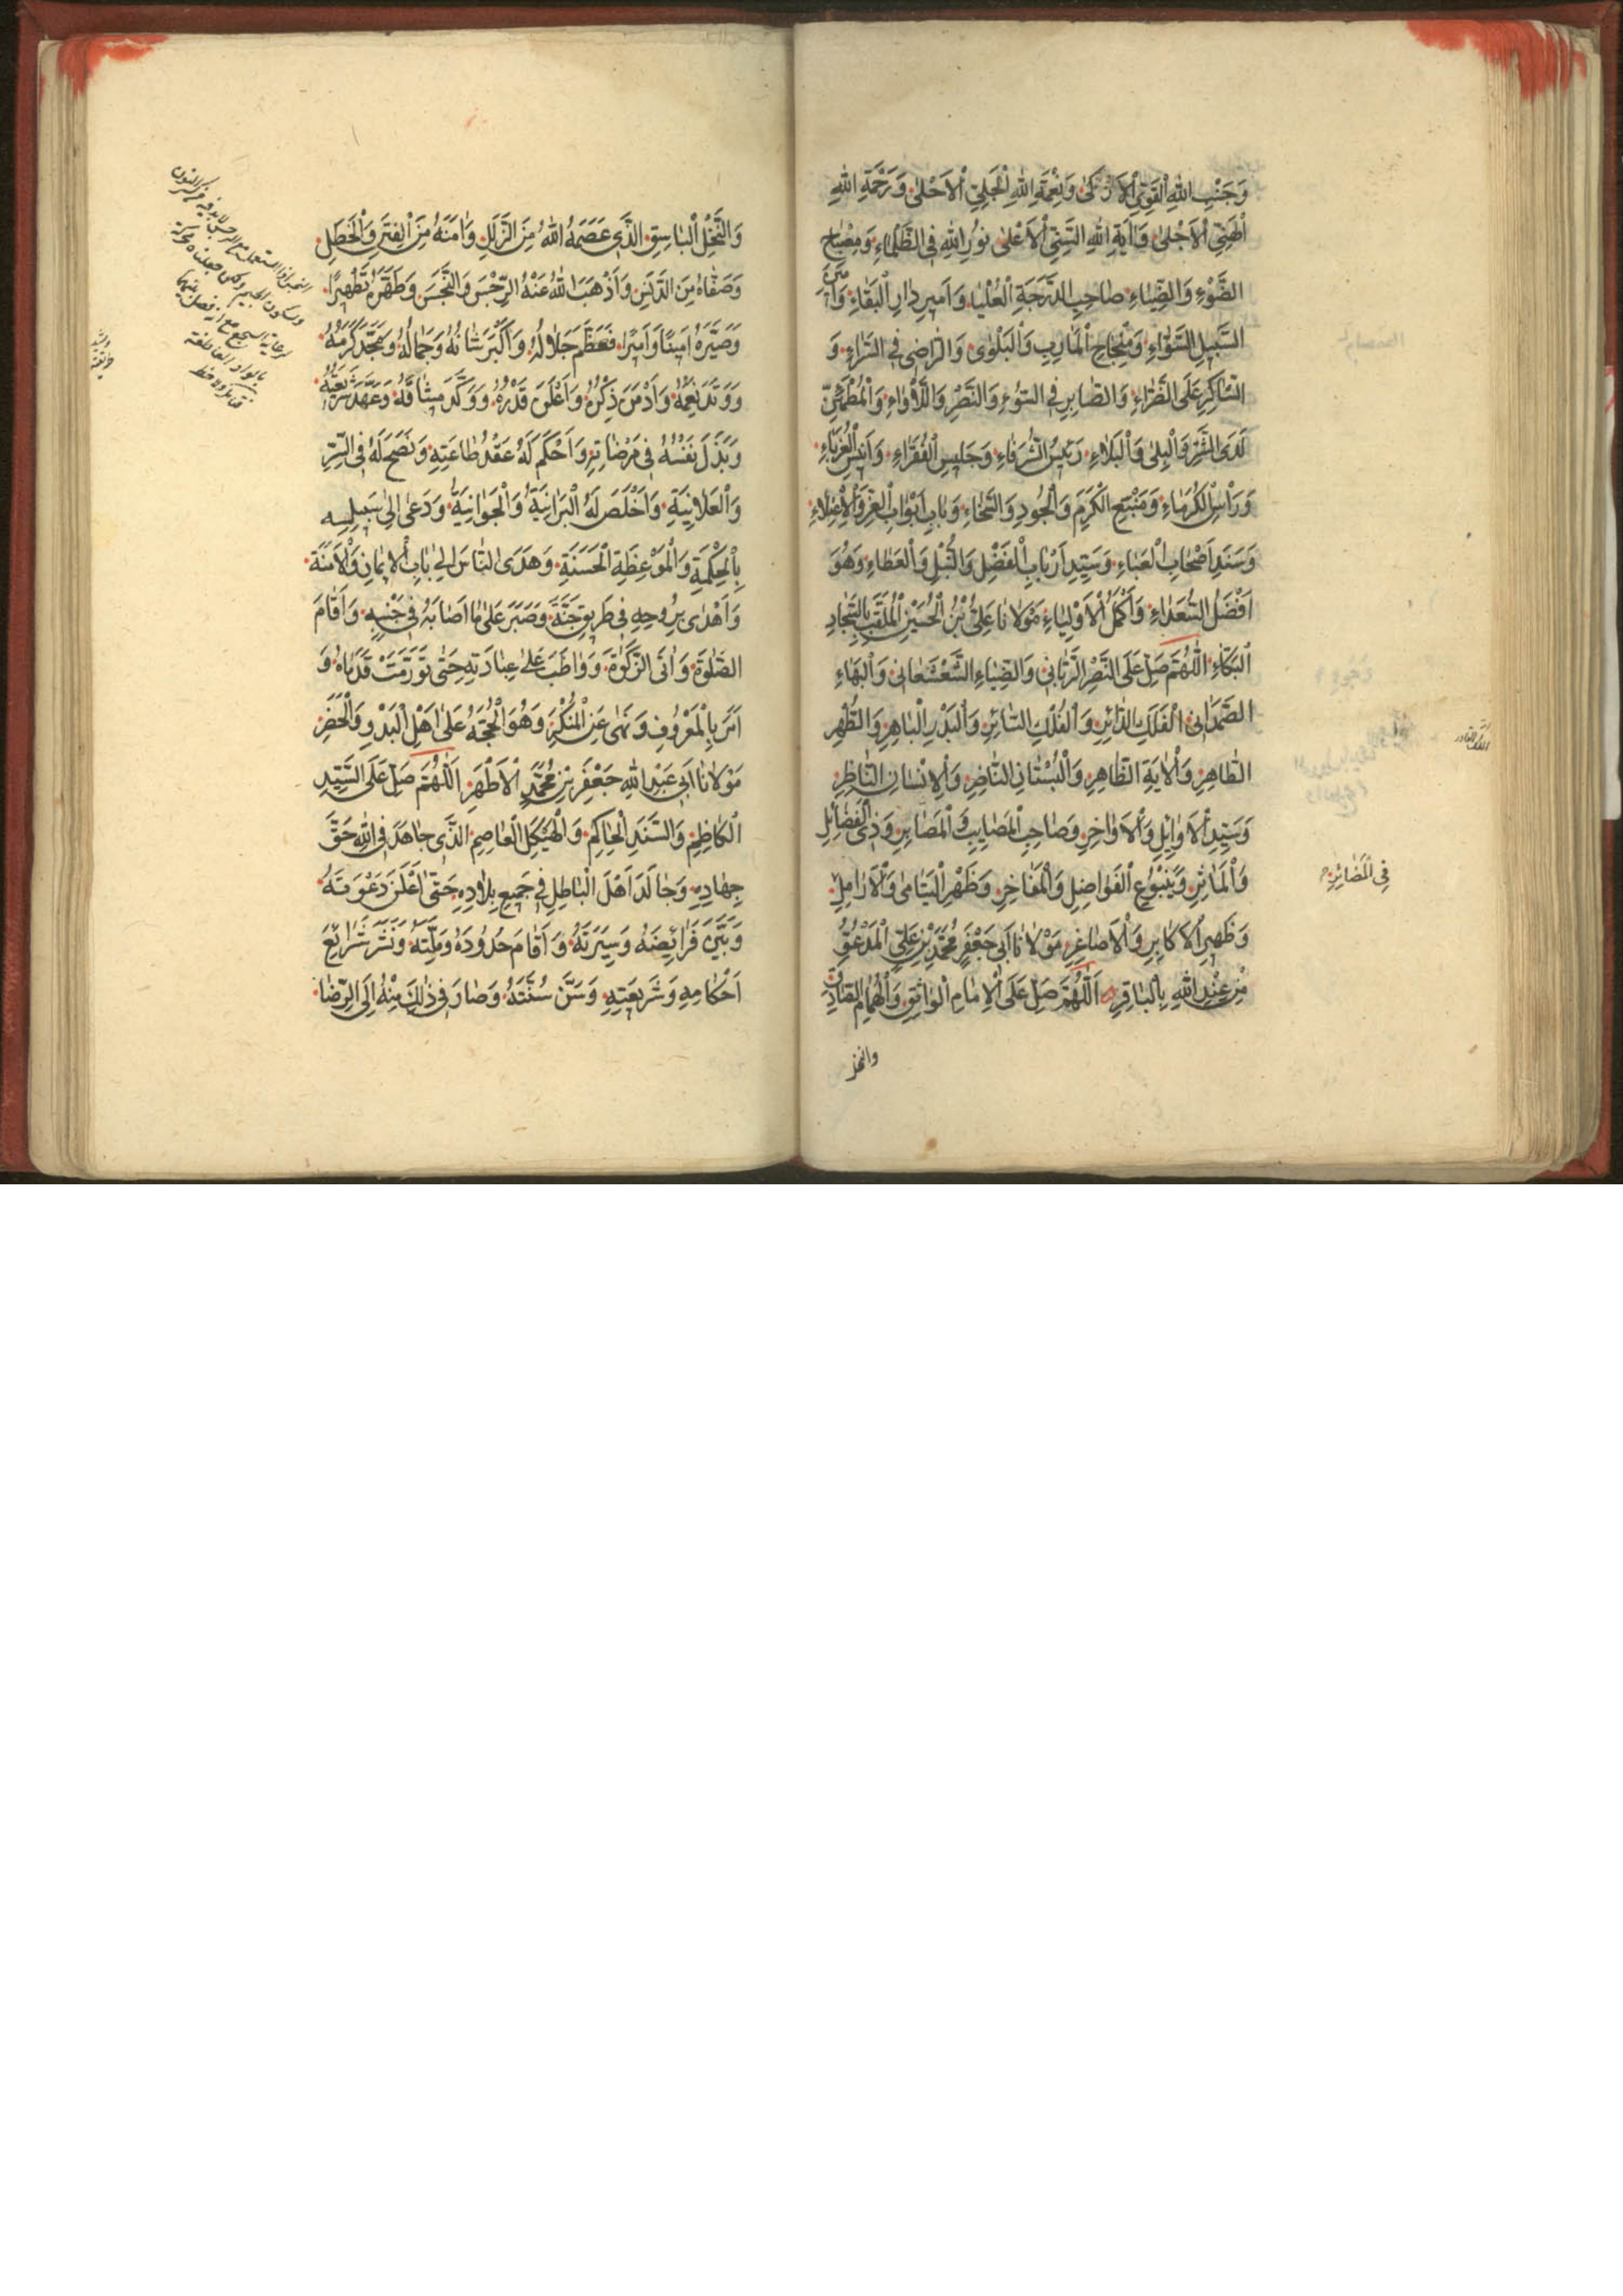 وَجَنْبِ اللهِ الْقَوِيِّ الْاَزْكىٰ وَنِعْمَةِ اللهِ الْجَلِيِّ الْاَحْلىٰ وَرَحْمَةِ اللهِ
الْهَنِيِّ الْاَجْلىٰ وَاٰيَةِ اللهِ السَّنِيِّ الْاَعْلىٰ نُورِ اللهِ فِي الظَّلْمَاءِ وَمِصْبَاحِ
الضَّوْءِ وَالضِّيَاءِ صَاحِبِ الدَّرَجَةِ الْعُلْيَا وَاَمِيرِ دَارِ الْبَقَاءِ وَاَمِينِ
السَّبِيلِ السَّوَاءِ وَمِنْجَاحِ الْمَاٰرِبِ وَالْبَلْوٰى وَالرَّاضِى فِي السَّرَاءِ وَ
الشَّاكِرِ عَلَى الضَّرَاءِ وَالصَّابِرِ فِي السُّوْءِ وَالضُّرِ وَالَّلأْوَاءِ وَالْمُطْمَئِنِّ
لَدَى الشَّرِّ وَالْبِلىٰ وَالْبَلَاءِ رَئِيسِ الشُّرَفَاءِ وَجَلِيسِ الْفُقَرَاءِ وَاَنِيسِ الْغُرَبَاءِ
وَرَأْسِ الْكُرَمَاءِ وَمَنْبَعِ الْكَرَمِ وَالْجُودِ وَالسَّخَاءِ وَبَابِ اَبْوَابِ الْعِزِّ وَالْاِعْتِلَاءِ
وَسَنَدِ اَصْحَابِ الْعَبَاءِ وَسَيِّدِ اَرْبَابِ الْفَضْلِ وَالنُّبْلِ وَالْعَطَاءِ وَهُوَ
اَفْضَلُ السُّعَدَاءِ وَاَكْمَلُ الْاَوْلِيَاءِ مَوْلَانَا عَلِيُّ بْنُ الْحُسَيْنِ الْمُلَقَّبِ بِالسَّجَّادِ
الْبَكَّاءِ اَللّٰهُمَّ صَلِّ عَلَى النَّصْرِ الرَّبَّانِي وَالضِّيَاءِ الشَّعْشَعَانِي وَالْبَهَاءِ
الصَّمَدَانِي الْفَلَكِ الدَّائِرِ وَالْفُلْكِ السَّائِرِ وَالْبَدْرِ الْبَاهِرِ وَالطُّهْرِ
الطَّاهِرِ وَالْاٰيَةِ الظَّاهِرِ وَالْبُسْتَانِ النَّاضِرِ وَالْاِنْسَانِ النَّاظِرِ
وَسَيِّدِ الْاَوَائِلِ وَالْاَوَاخِرِ وَصَاحِبِ الْمَصَايِبِ وَالْمَصَابِرِ وَذِي الْفَضَائِلِ
فِي الْمَضَائِرِ
وَالْمَاٰثِرِ وَيَنْبُوْعِ الْفَوَاضِلِ وَالْمَفَاخِرِ وَظَهْرِ الْيَتَامىٰ وَالْاَرَامِلِ
وَظَهِيرِ الْاَكَابِرِ وَالْاَصَاغِرِ مَوْلَانَا اَبِي جَعْفَرٍ مُحَمَّدِ بْنِ عَلِيٍّ الْمَدْعُوِّ
مِنْ عِنْدِ اللهِ بِالْبَاقِرِ اَللّٰهُمَّ صَلِّ عَلَى الْاِمَامِ الْوَاثِقِ وَالْهُمَامِ الصَّادِقِ
والنخل
وَالنَّخْلِ الْبَاسِقِ الَّذِي عَصَمَهُ اللهُ مِنَ الزَّلَلِ وَاٰمَنَهُ مِنَ الْفِتَنِ وَالْخَطَلِ
وَصَفَّاهُ مِنَ الدَّنَسِ وَاَذْهَبَ اللهُ عَنْهُ الرِّجْسَ وَالنَّجَسَ وَطَهَّرَهُ تَطْهِيرًا
وَصَيَّرَهُ اَمِينًا وَاَمِيرًا فَعَظَّمَ جَلَالَهُ وَاَكْبَرَ شَانَهُ وَجَمَالَهُ وَمَجَّدَ كَرَمَهُ
وَوَتَّدَ نِعَمَهُ وَاَدْمَنَ ذِكْرَهُ وَاَعْلَنَ قَدْرَهُ وَوَكَّدَ مِيثَاقَهُ وَعَهَّدَ شَرِيعَتَهُ
وَبَذَلَ نَفْسَهُ فِي مَرْضَاتِهِ وَاَحْكَمَ لَهُ عَقْدَ طَاعَتِهِ وَنَصَحَ لَهُ فِي السِّرِّ
وَالْعَلَانِيَةِ وَاَخْلَصَ لَهُ الْبَرَانِيَةُ وَالْجَوَانِيَةُ وَدَعىٰ اِلىٰ سَبِيلِهِ
بِالْحِكْمَةِ وَالْمَوْعِظَةِ الْحَسَنَةِ وَهَدَى النَّاسَ اِلىٰ بَابِ الْاِيمَانِ وَالْاَمَنَةِ
وَاَهْدٰى بِرُوحِهِ فِي طَرِيقِ جَنَّةَ وَصَبَرَ عَلىٰ مَا اَصَابَهُ فِي جَنْبِهِ وَاَقَامَ
الصَّلٰوةَ وَاٰتَى الزَّكٰوةَ وَوَاظَبَ عَلىٰ عِبَادَتِهِ حَتّىٰ تَوَرَّمَتْ قَدَمَاهُ وَ
اَمَرَ بِالْمَعْرُوفِ وَنَهىٰ عَنِ الْمُنْكَرِ وَهُوَ الْحُجَّةُ عَلىٰ اَهْلِ الْبَدْوِ وَالْحَضَرِ
مَوْلَانَا اَبِي عَبْدِ اللهِ جَعْفَرِ بْنِ مُحَمَّدٍ الْاَطْهَرِ اَللّٰهُمَّ صَلِّ عَلَى السَّيِّدِ
الْكَاظِمِ وَالسَّنَدِ الْحَاكِمِ وَالْهَيْكَلِ الْعَاصِمِ الَّذِي جَاهَدَ فِي اللهِ حَقَّ
جِهَادِهِ وَجَالَدَ اَهْلَ الْبَاطِلِ فِي جَمِيعِ بِلَادِهِ حَتّىٰ اَعْلَنَ دَعْوَتَهُ
وَبَيَّنَ فَرَائِضَهُ وَسِيرَتَهُ وَاَقَامَ حُدُودَهُ وَمِلَّتَهُ وَنَشَرَ شَرَائِعَ
اَحْكَامِهِ وَشَرِيعَتِهِ وَسَنَّ سُنَّتَهُ وَصَارَ فِي ذٰلِكَ مِنْهُ اِلَى الرِّضَا